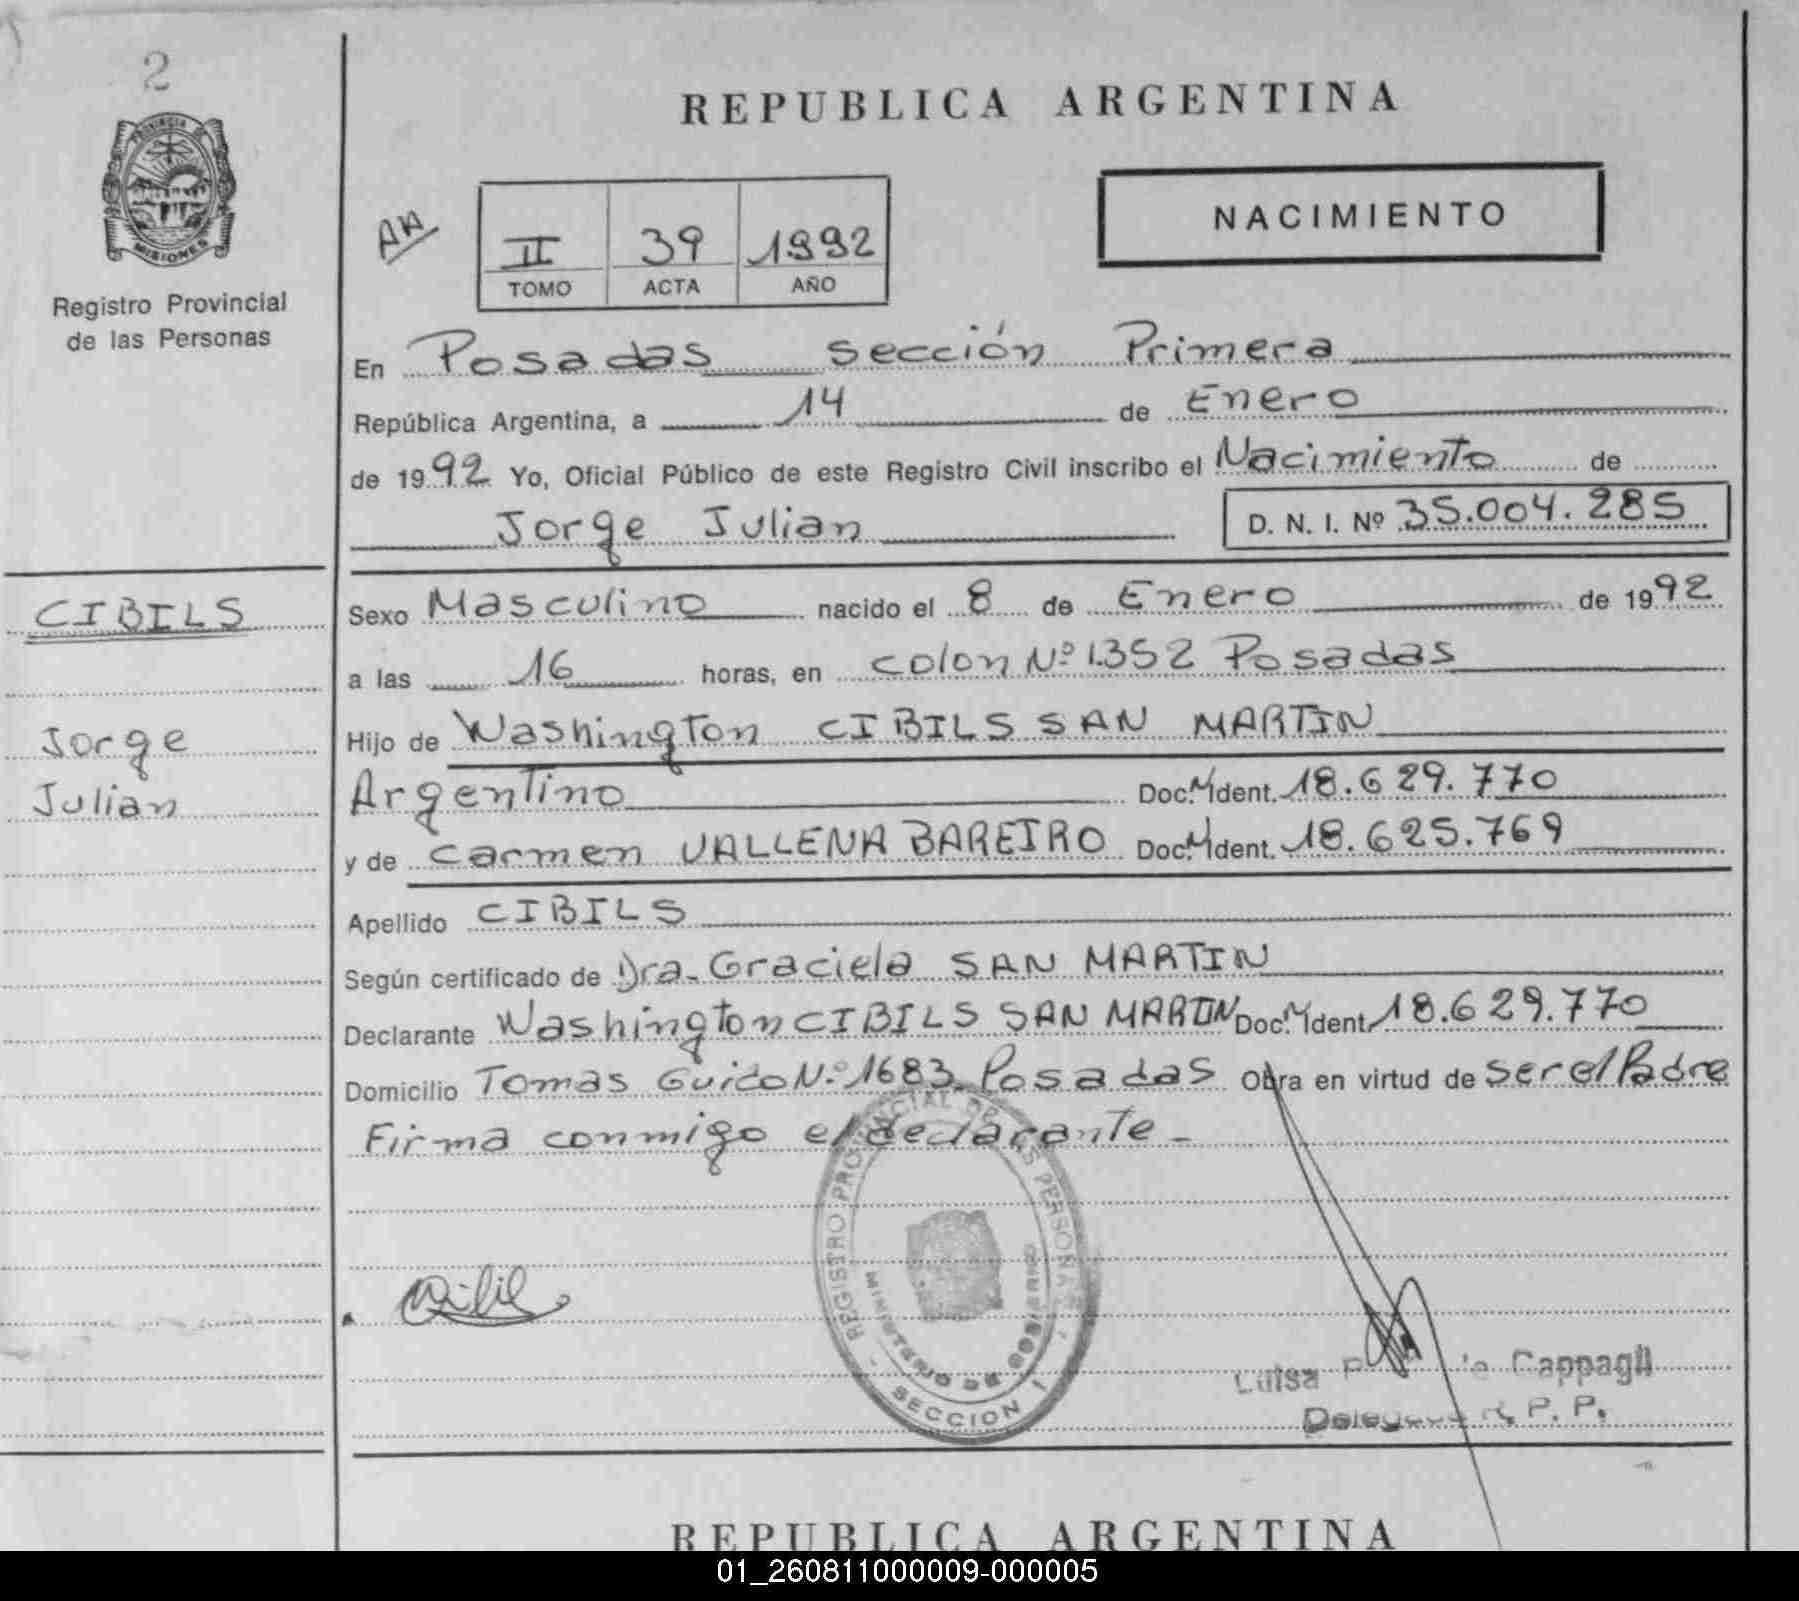 2
PROVINCIA DE
MISIONES
Registro Provincial
de las Personas
REPUBLICA ARGENTINA
NACIMIENTO
II 39 1992
TOMO ACTA AÑO
En Posadas sección Primera
República Argentina, a 14 de Enero
de 1992 Yo, Oficial Público de este Registro Civil inscribo el Nacimiento de
Jorge Julian D. N. I. Nº 35.004.285
CIBILS
Jorge
Julian
Sexo Masculino nacido el 8 de Enero de 1992
a las 16 horas, en colon Nº 1.352 Posadas
Hijo de Washington CIBILS SAN MARTIN
Argentino Doc. Ident. 18.629.770
y de Carmen VALLENA BAREIRO Doc. Ident. 18.625.769
Apellido CIBILS
Según certificado de Dra. Graciela SAN MARTIN
Declarante Washington CIBILS SAN MARTIN Doc. Ident. 18.629.770
Domicilio Tomas Guido N.º 1683 Posadas Obra en virtud de ser el Padre
Firma conmigo el declarante
REGISTRO PROVINCIAL DE LAS PERSONAS
MINISTERIO DE GOBIERNO
SECCION 1
Luisa Cappagli
R. P. P.
REPUBLICA ARGENTINA
01_260811000009-000005